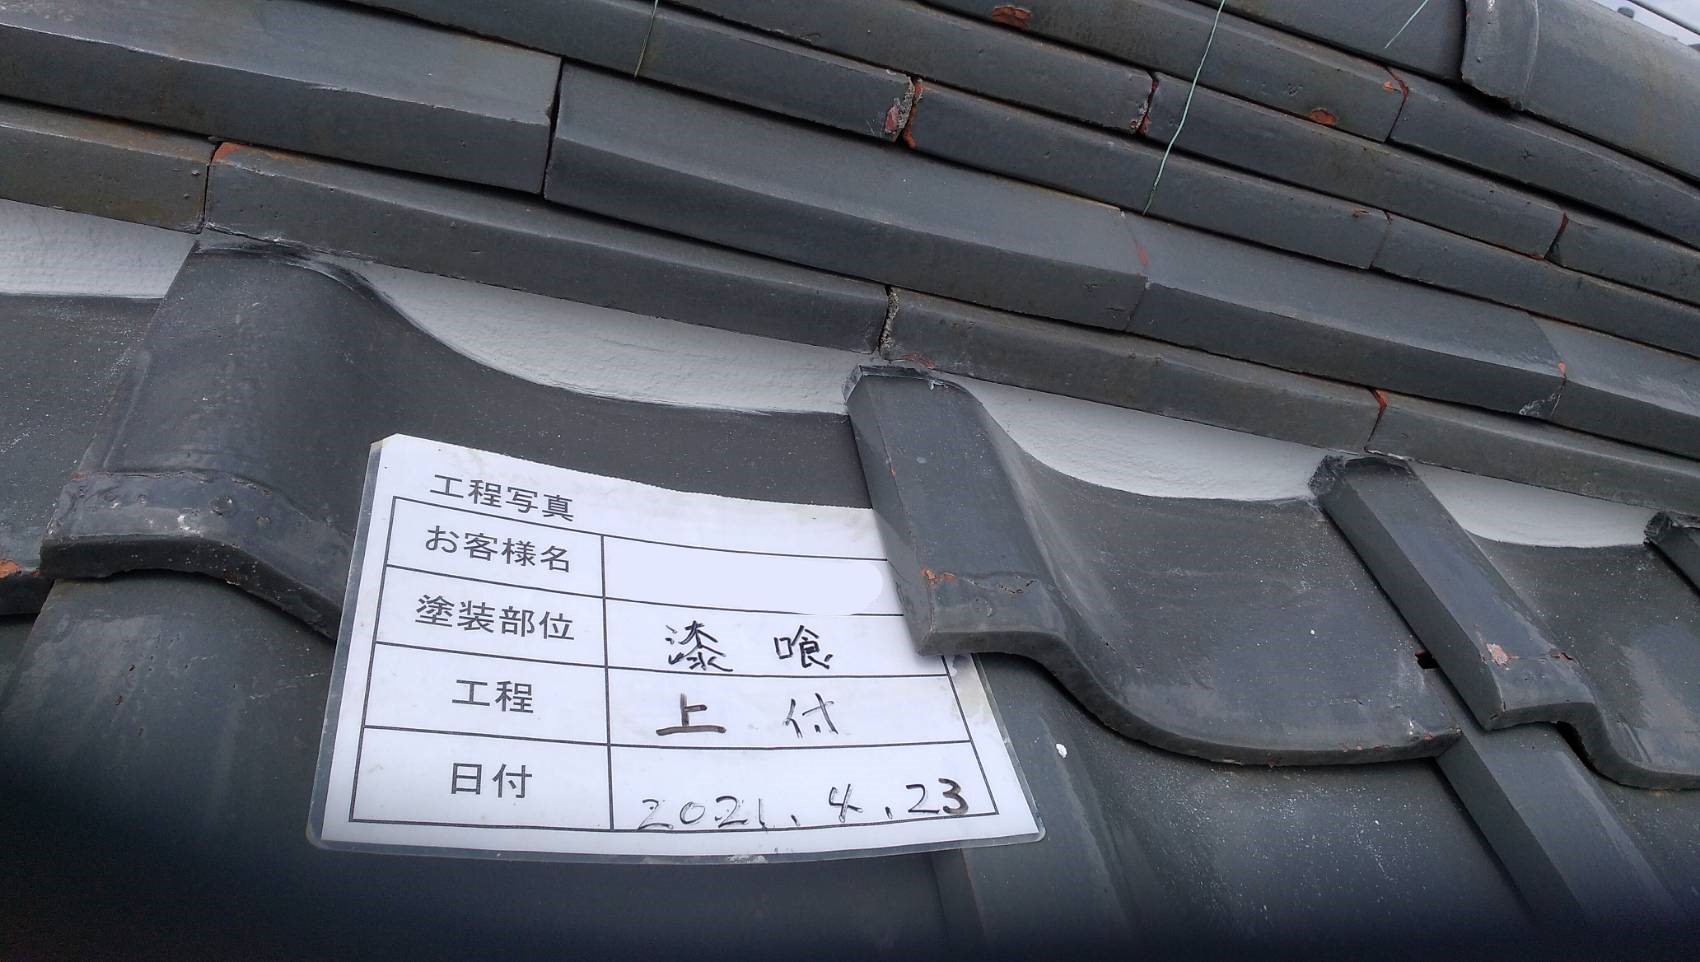 工程写真
お客様名
塗装部位 漆喰
工程 上付
日付 2021.4.23